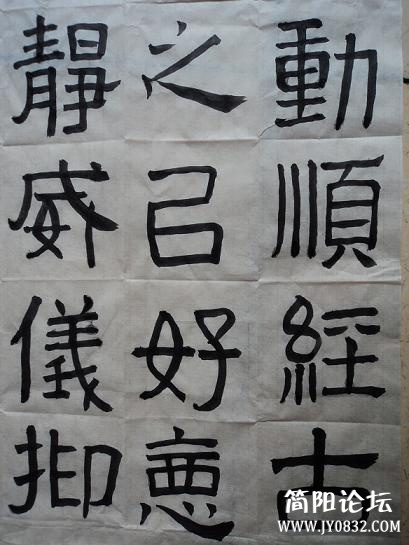 動順經古
之㠯好惡
靜威儀抑
简阳论坛
WWW.JY0832.COM